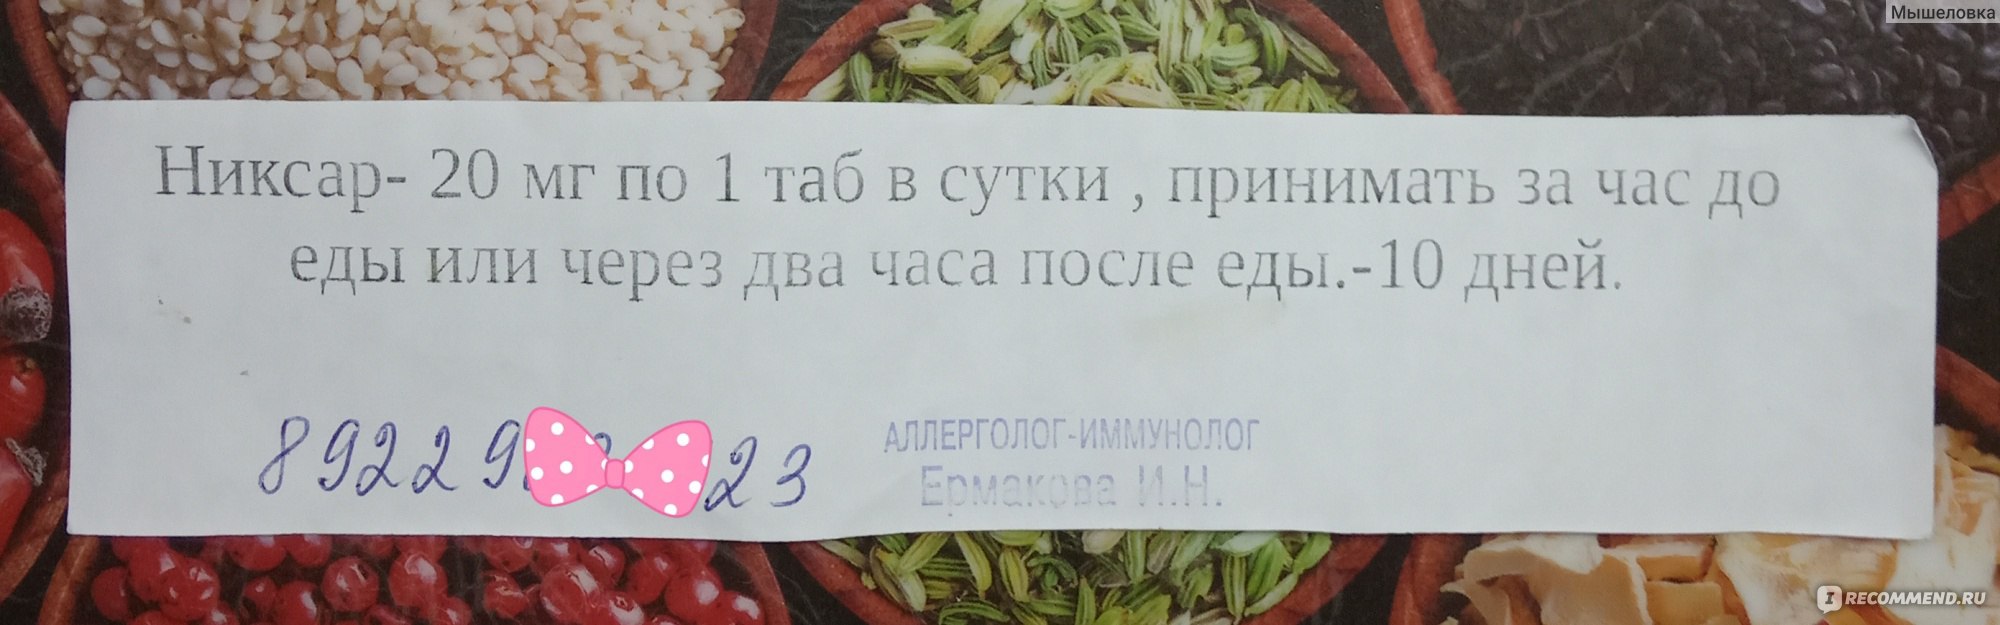 Мышеловка
Никсар- 20 мг по 1 таб в сутки , принимать за час до
еды или через два часа после еды.-10 дней.
89229 23
АЛЛЕРГОЛОГ-ИММУНОЛОГ
Ермакова И.Н.
I RECOMMEND.RU